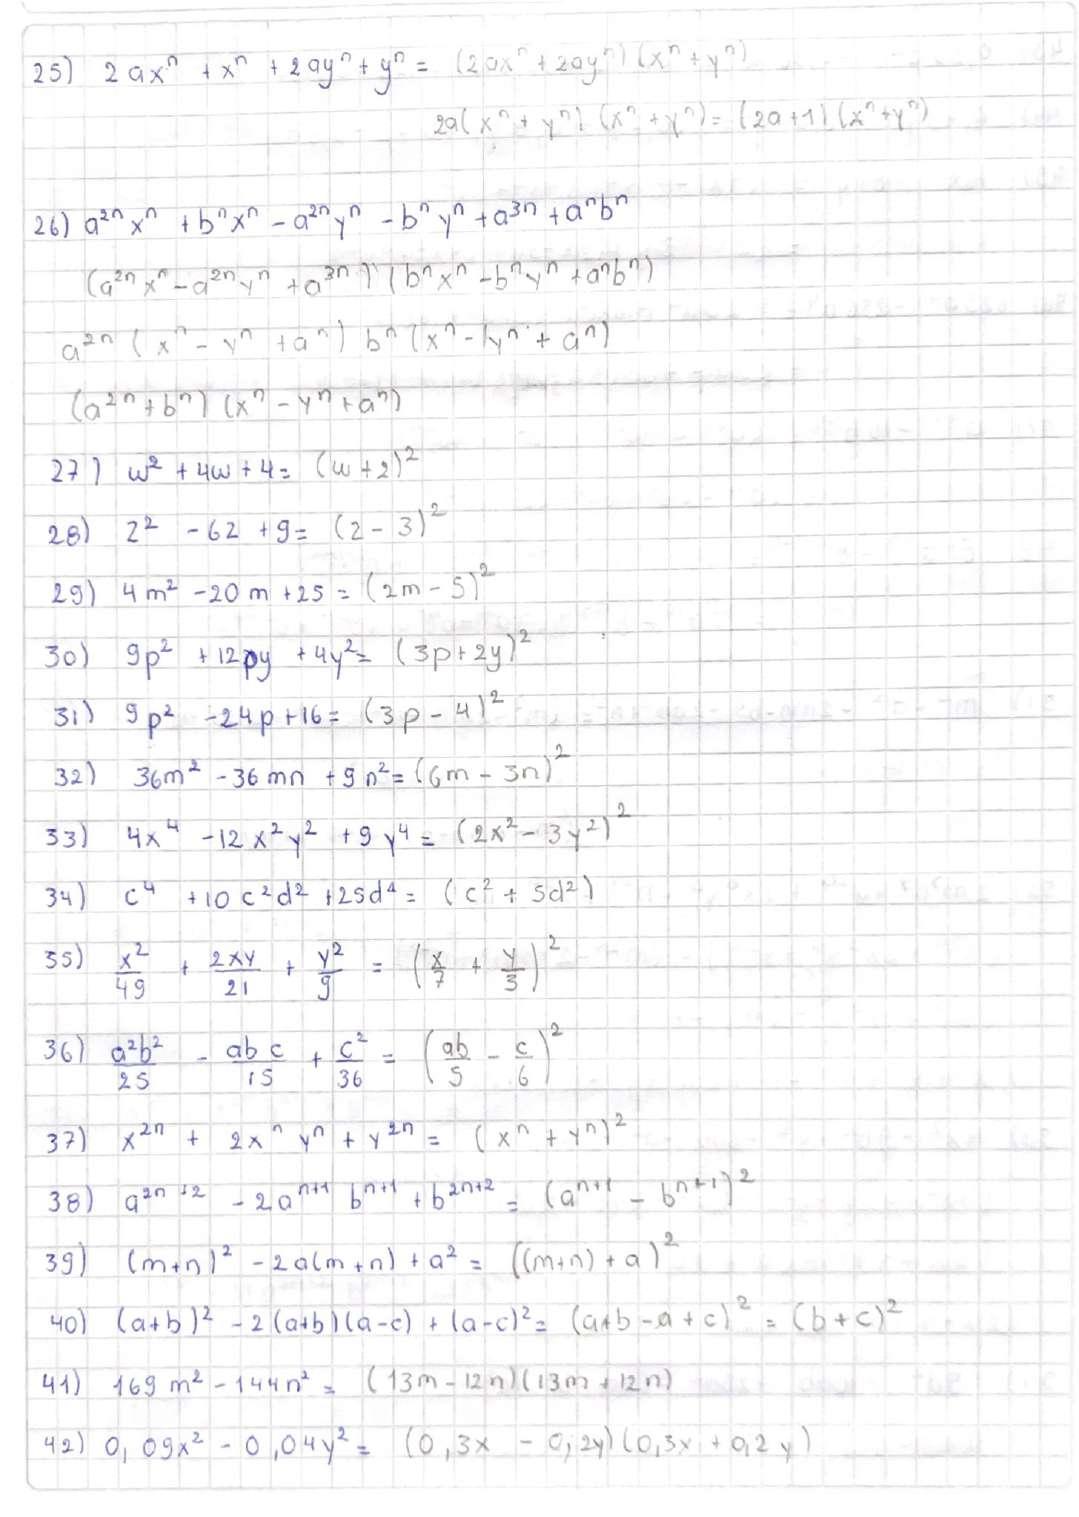 25) 2ax^n + x^n + 2ay^n + y^n = (2ax^n + 2ay^n) (x^n + y^n)
2a(x^n + y^n) (x^n + y^n) = (2a+1) (x^n + y^n)
26) a^2n x^n + b^n x^n - a^2n y^n - b^n y^n + a^3n + a^n b^n
(a^2n x^n - a^2n y^n + a^3n) (b^n x^n - b^n y^n + a^n b^n)
a^2n (x^n - y^n + a^n) b^n (x^n - y^n + a^n)
(a^2n + b^n) (x^n - y^n + a^n)
27) w² + 4w + 4 = (w + 2)²
28) z² - 6z + 9 = (z - 3)²
29) 4m² - 20m + 25 = (2m - 5)²
30) 9p² + 12py + 4y² = (3p + 2y)²
31) 9p² - 24p + 16 = (3p - 4)²
32) 36m² - 36mn + 9n² = (6m - 3n)²
33) 4x⁴ - 12x²y² + 9y⁴ = (2x² - 3y²)²
34) c⁴ + 10c²d² + 25d⁴ = (c² + 5d²)
35) x²/49 + 2xy/21 + y²/9 = (x/7 + y/3)²
36) a²b²/25 - abc/15 + c²/36 = (ab/5 - c/6)²
37) x^2n + 2x^n y^n + y^2n = (x^n + y^n)²
38) a^2n+2 - 2a^n+1 b^n+1 + b^2n+2 = (a^n+1 - b^n+1)²
39) (m+n)² - 2a(m+n) + a² = ((m+n) + a)²
40) (a+b)² - 2(a+b)(a-c) + (a-c)² = (a+b-a+c)² = (b+c)²
41) 169m² - 144n² = (13m - 12n)(13m + 12n)
42) 0,09x² - 0,04y² = (0,3x - 0,2y)(0,3x + 0,2y)